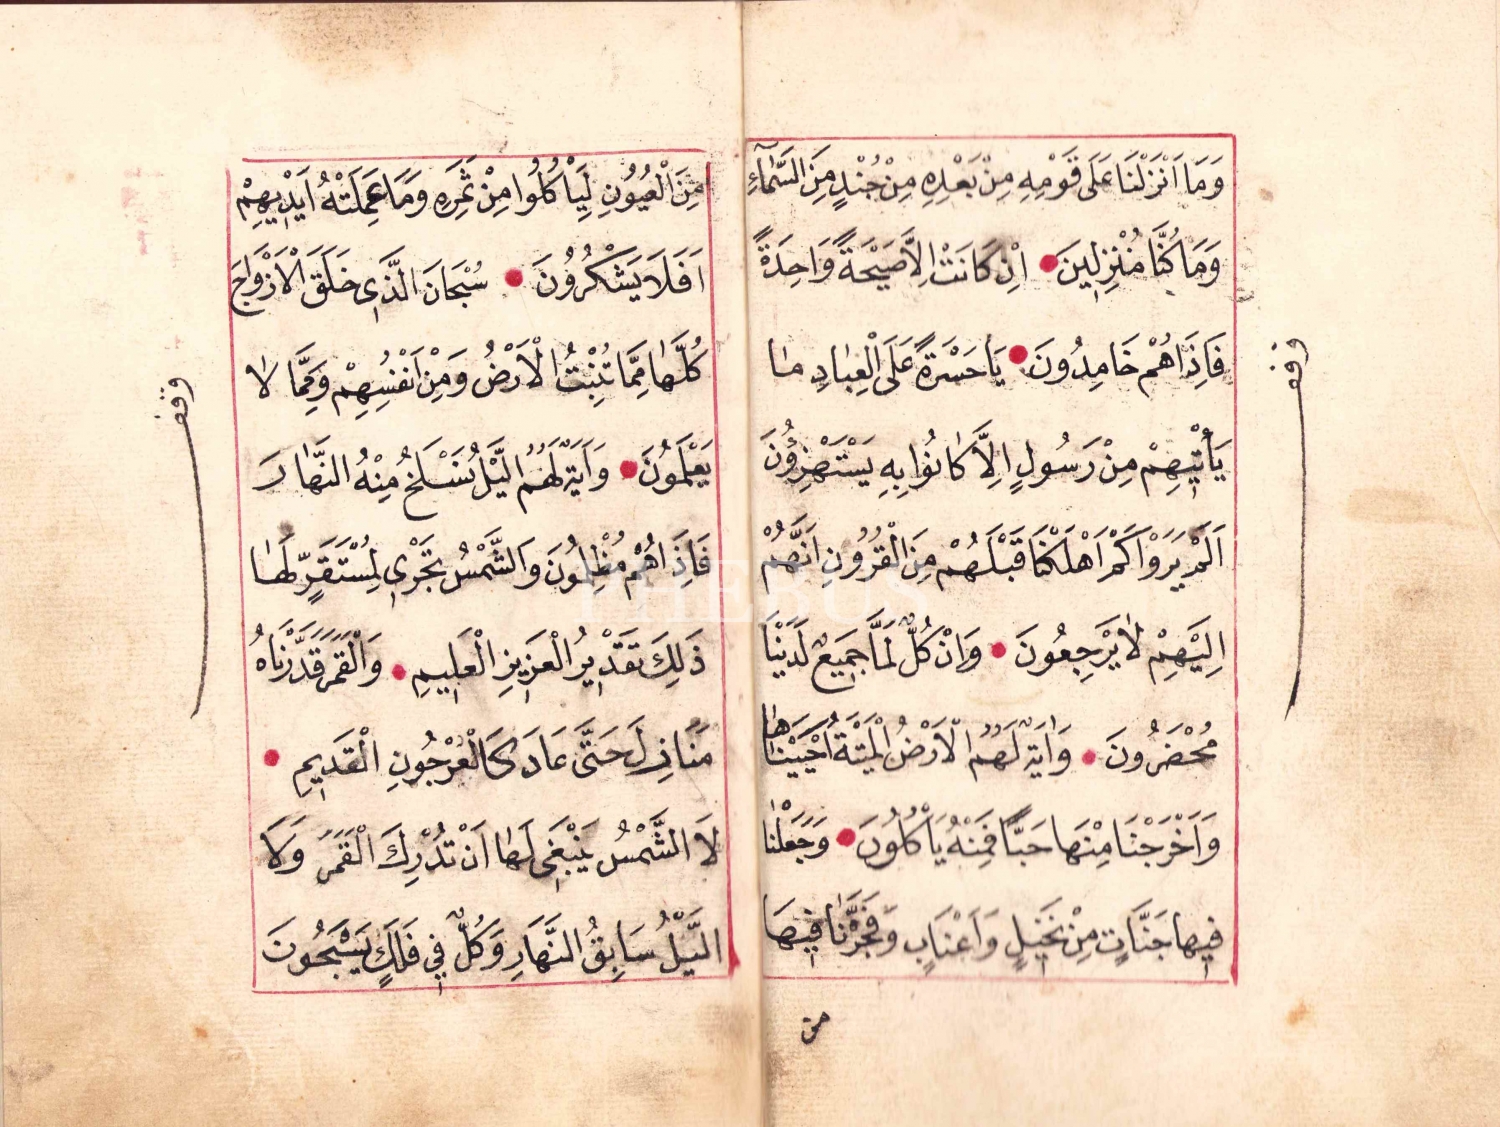 وَمَا اَنْزَلْنَا عَلَى قَوْمِهِ مِنْ بَعْدِهِ مِنْ جُنْدٍ مِنَ السَّمَآءِ
وَمَا كُنَّا مُنْزِلِينَ اِنْ كَانَتْ اِلَّا صَيْحَةً وَاحِدَةً
فَاِذَا هُمْ خَامِدُونَ يَا حَسْرَةً عَلَى الْعِبَادِ مَا
يَأْتِيهِمْ مِنْ رَسُولٍ اِلَّا كَانُوا بِهِ يَسْتَهْزِؤُنَ
اَلَمْ يَرَوْا كَمْ اَهْلَكْنَا قَبْلَهُمْ مِنَ الْقُرُونِ اَنَّهُمْ
اِلَيْهِمْ لَا يَرْجِعُونَ وَاِنْ كُلٌّ لَمَّا جَمِيعٌ لَدَيْنَا
مُحْضَرُونَ وَاٰيَةٌ لَهُمُ الْاَرْضُ الْمَيْتَةُ اَحْيَيْنَاهَا
وَاَخْرَجْنَا مِنْهَا حَبًّا فَمِنْهُ يَأْكُلُونَ وَجَعَلْنَا
فِيهَا جَنَّاتٍ مِنْ نَخِيلٍ وَاَعْنَابٍ وَفَجَّرْنَا فِيهَا
من
وقف
مِنَ الْعُيُونِ لِيَأْكُلُوا مِنْ ثَمَرِهِ وَمَا عَمِلَتْهُ اَيْدِيهِمْ
اَفَلَا يَشْكُرُونَ سُبْحَانَ الَّذِي خَلَقَ الْاَزْوَاجَ
كُلَّهَا مِمَّا تُنْبِتُ الْاَرْضُ وَمِنْ اَنْفُسِهِمْ وَمِمَّا لَا
يَعْلَمُونَ وَاٰيَةٌ لَهُمُ الَّيْلُ نَسْلَخُ مِنْهُ النَّهَارَ
فَاِذَا هُمْ مُظْلِمُونَ وَالشَّمْسُ تَجْرِي لِمُسْتَقَرٍّ لَهَا
ذَلِكَ تَقْدِيرُ الْعَزِيزِ الْعَلِيمِ وَالْقَمَرَ قَدَّرْنَاهُ
مَنَازِلَ حَتَّى عَادَ كَالْعُرْجُونِ الْقَدِيمِ
لَا الشَّمْسُ يَنْبَغِي لَهَا اَنْ تُدْرِكَ الْقَمَرَ وَلَا
الَّيْلُ سَابِقُ النَّهَارِ وَكُلٌّ فِي فَلَكٍ يَسْبَحُونَ
وقف
THEBUS